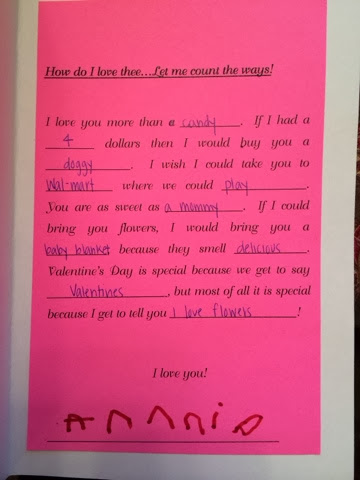 How do I love thee....Let me count the ways!
I love you more than a candy. If I had a
4 dollars then I would buy you a
doggy. I wish I could take you to
Wal-mart where we could play.
You are as sweet as a mommy. If I could
bring you flowers, I would bring you a
baby blanket because they smell delicious.
Valentine's Day is special because we get to say
Valentines, but most of all it is special
because I get to tell you I love flowers!
I love you!